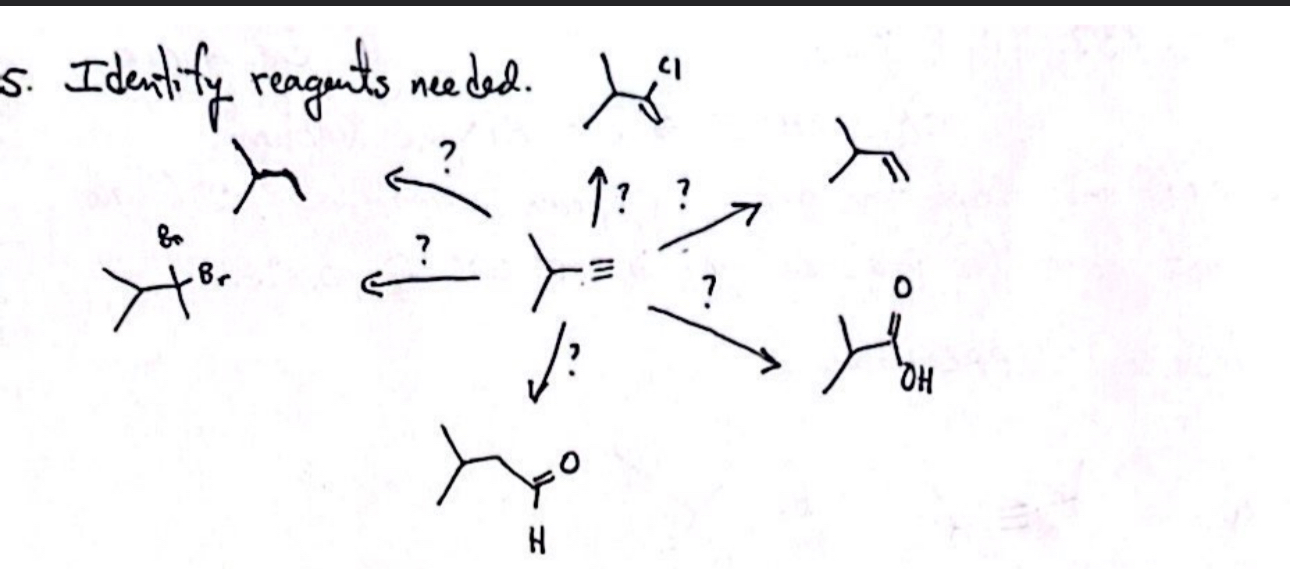 5. Identify reagents needed.
Cl
?
? ?
Br
Br
?
?
O
OH
?
O
H